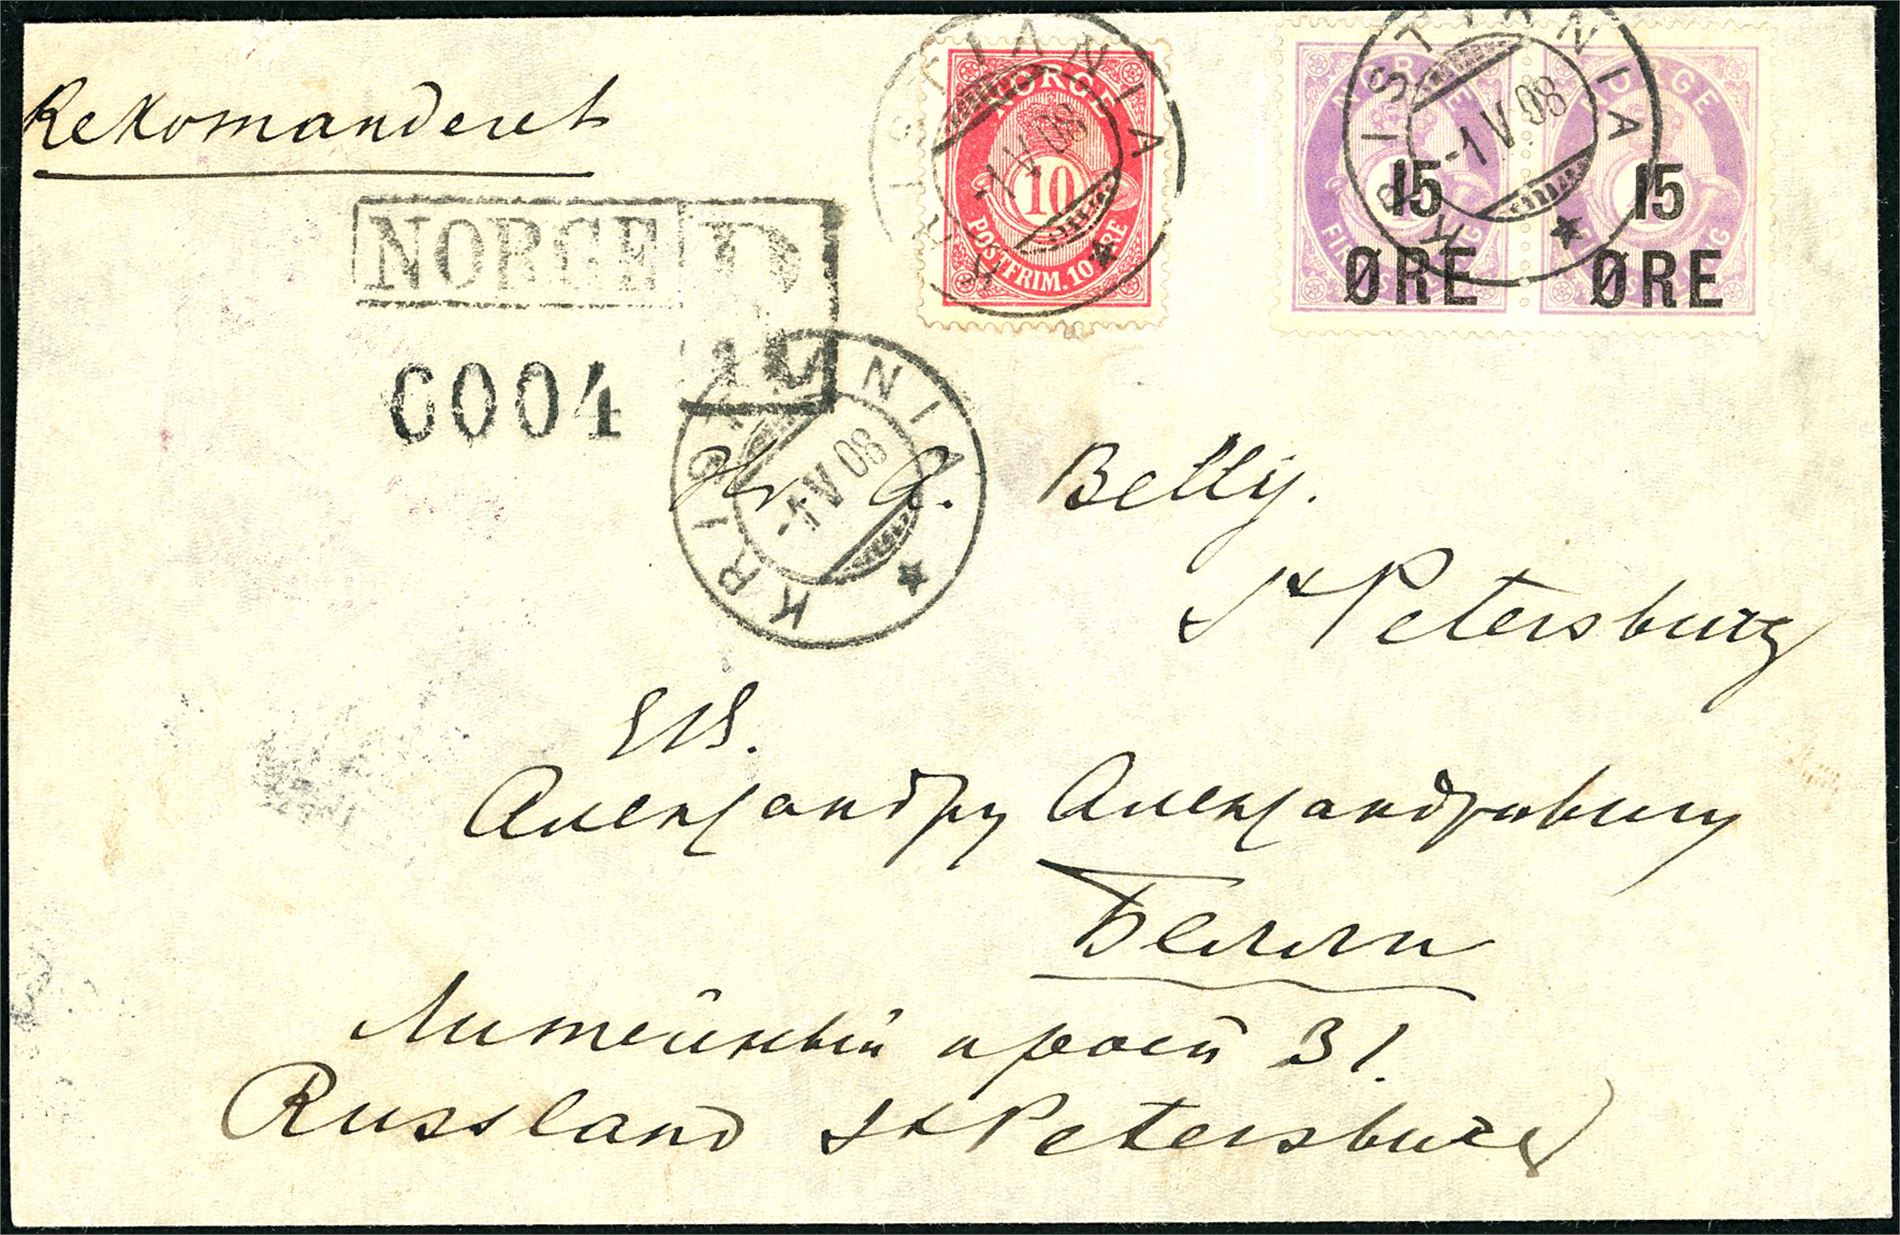 Rekomanderet
NORGE
POSTFRIM. 10 ØRE
10
KRISTIANIA
-1 V 08
NORGE
15 ØRE
NORGE
15 ØRE
KRISTIANIA
-1 V 08
NORGE R
0004
KRISTIANIA
-1 V 08
Hr. A. Belly.
St Petersburg
Е.В.
Александру Александровичу
Белли
Литейный просп 31.
Russland St Petersburg